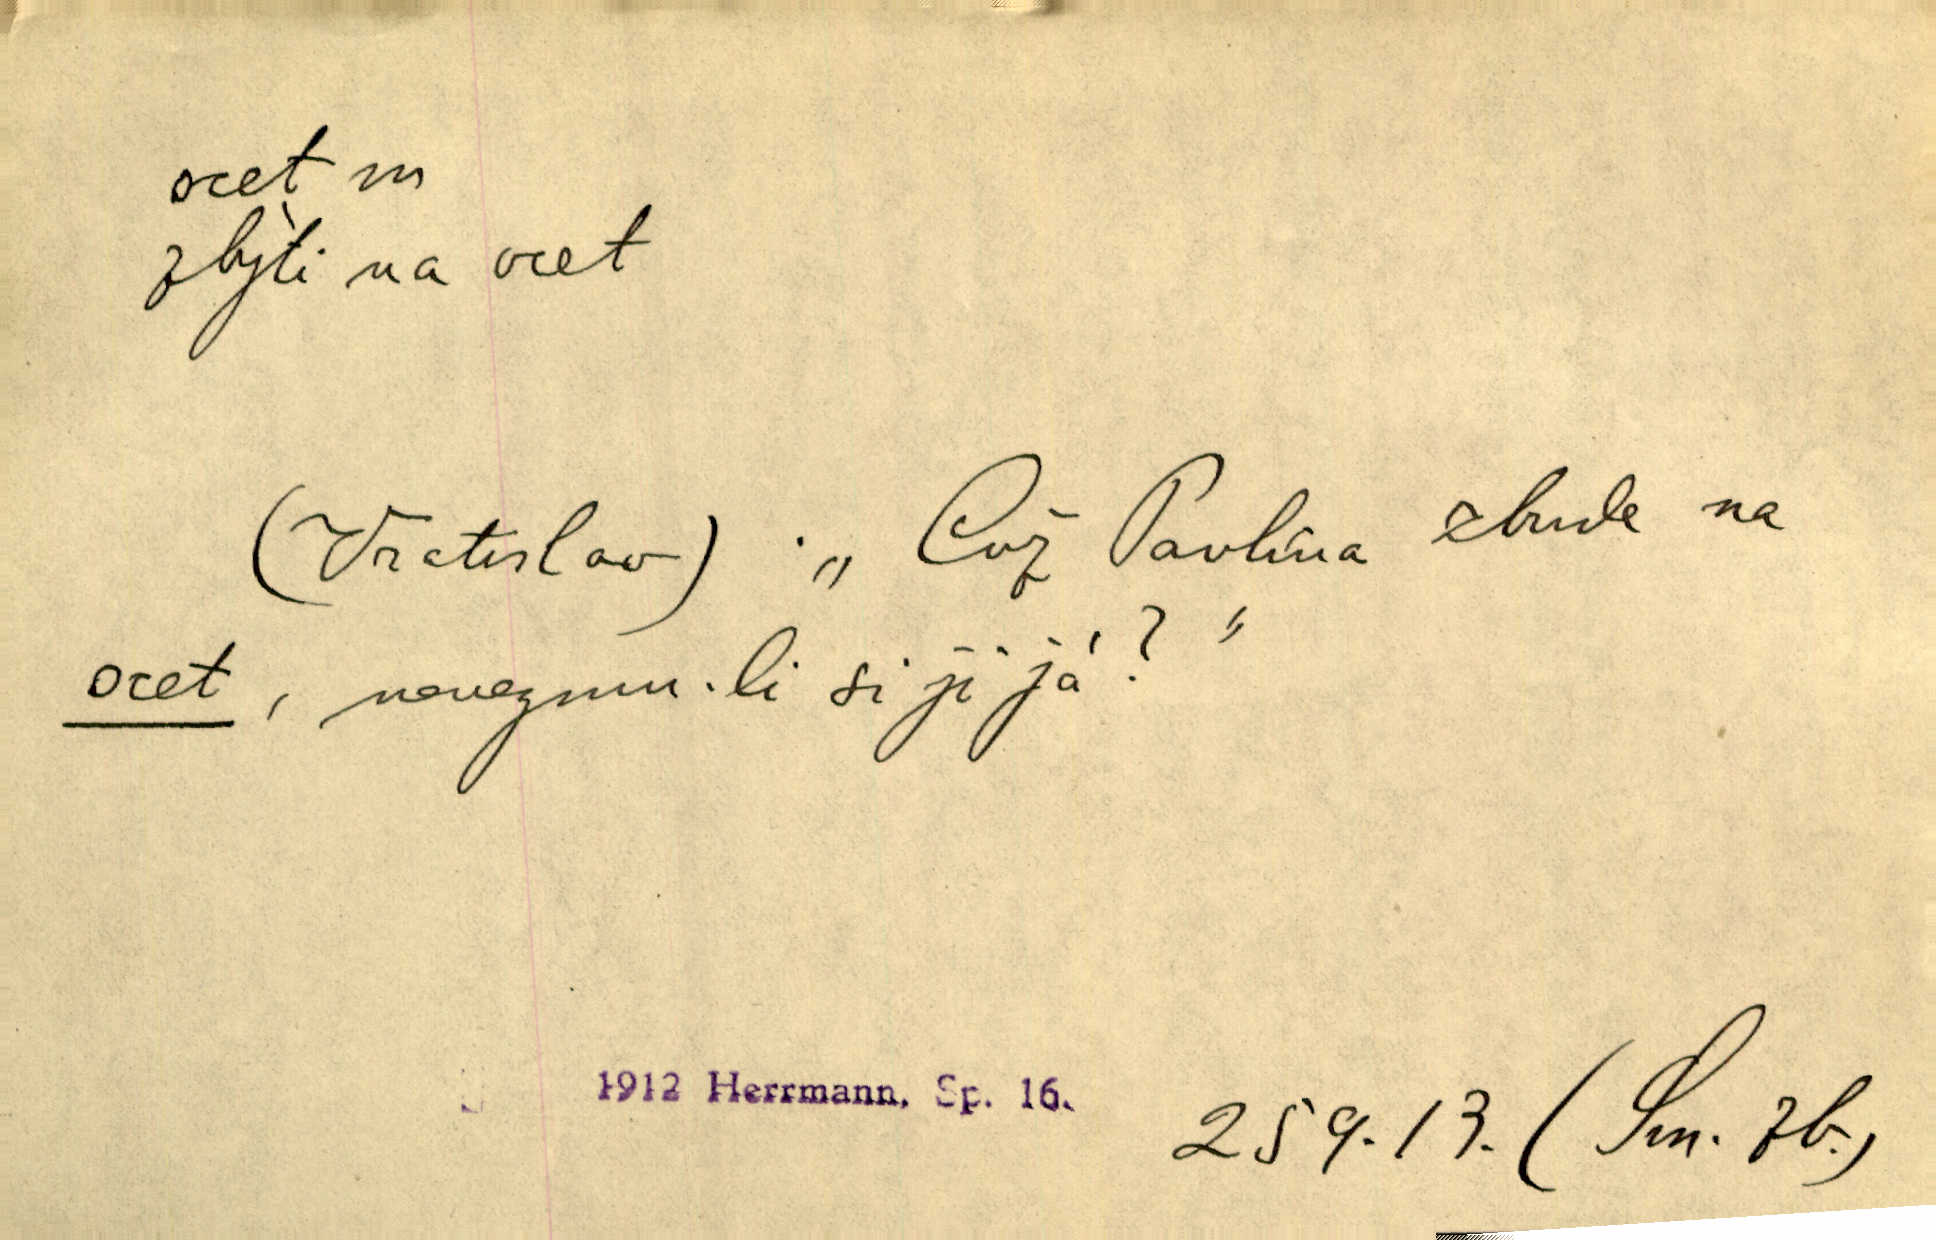 ocet m
zbýti na ocet
(Vratislav) . „Což Pavlína zbude na
ocet, nevezmu-li si ji já?"
1912 Herrmann, Sp. 16.
259.13. (Sm. zb.)